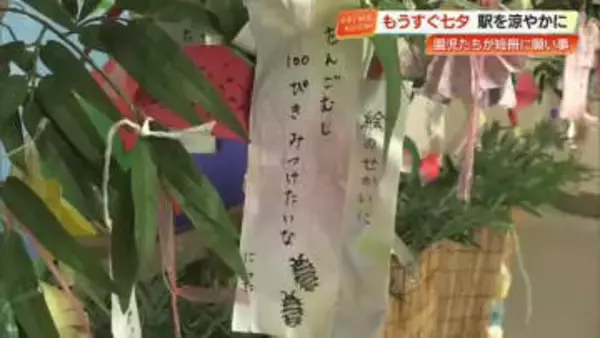 もうすぐ七夕 駅を涼やかに
園児たちが短冊に願い事
だんごむし
100ぴきみつけたいな
絵のせかいに